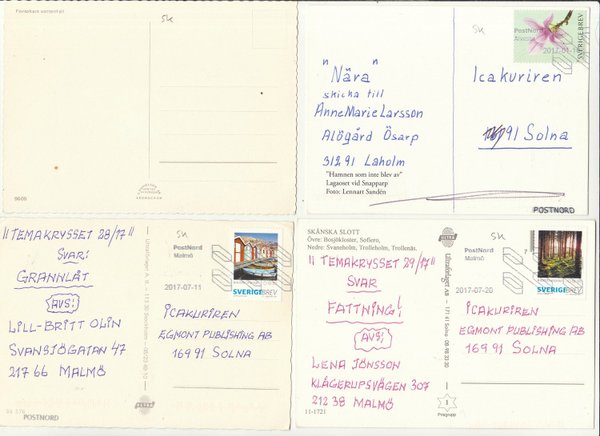 Finnåkers vattenfall
SK
9605
SK
PostNord
SVERIGE BREV
" "
Nära
skicka till
AnneMarie Larsson
Alögård Ösarp
312 91 Laholm
"Hamnen som inte blev av"
Lagaoset vid Snapparp
Foto: Lennart Sandén
Icakuriren
91 Solna
POSTNORD
"TEMAKRYSSET 28/17"
SVAR:
GRANNLÅT
AVS:
LILL-BRITT OLIN
SVANSJÖGATAN 47
217 66 MALMÖ
POSTNORD
SK
PostNord
Malmö
2017-07-11
SVERIGE BREV
ICAKURIREN
EGMONT PUBLISHING AB
169 91 SOLNA
SKÅNSKA SLOTT
Övre: Bosjökloster, Sofiero,
Nedre: Svaneholm, Trolleholm, Trollenäs.
"TEMAKRYSSET 29/17"
SVAR
FATTNING!
AVS:
LENA JÖNSSON
KLÅGERUPSVÄGEN 307
212 38 MALMÖ
11-1721
SK
PostNord
Malmö
2017-07-20
SVERIGE BREV
ICAKURIREN
EGMONT PUBLISHING AB
169 91 SOLNA
1
Prisgrupp